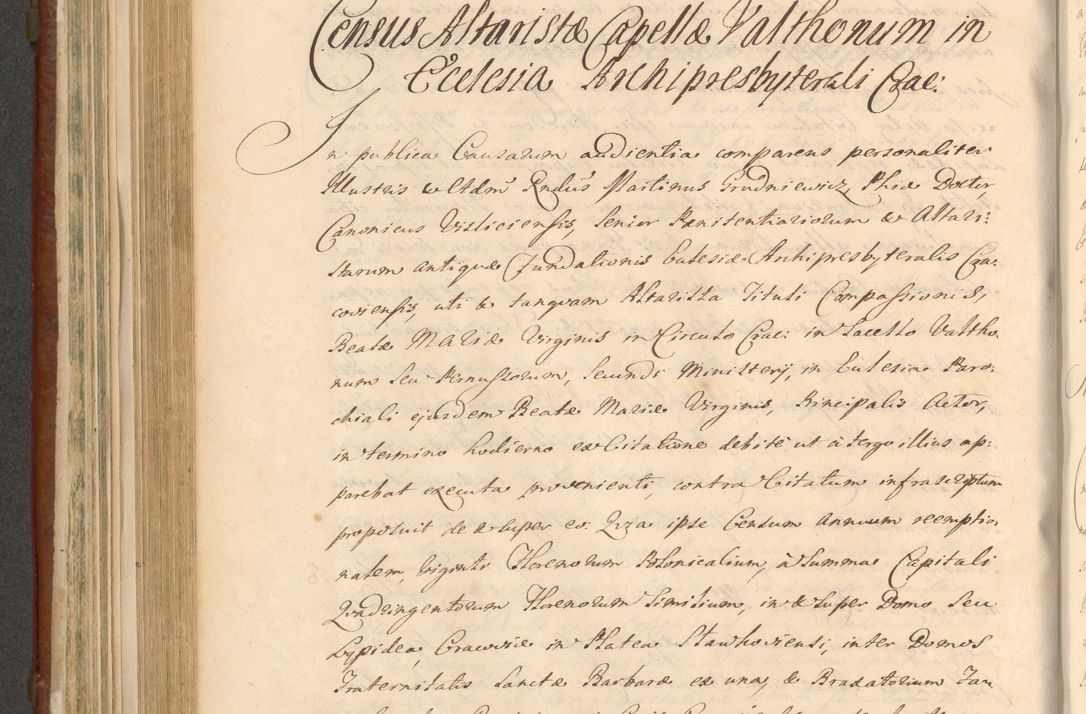 Census Altaristæ Capellæ Valthonum in
Ecclesia Archipresbyterali Crac:
In publica Causarum audientia comparens personaliter
Illustris & Adm Rndus Martinus Grudniewicz, Phiæ Doctor,
Canonicus Visliciensis, Senior Pænitentiariorum & Altari:
starum antiquæ Fundationis Ecclesiæ Archipresbyteralis Cra:
coviensis, uti & tanquam Altarista Tituli Compassionis,
Beatæ MARIÆ Virginis in Circulo Crac: in Sacello Valtho:
num seu Pernussorum, Secundi Ministerij, in Ecclesia Paro:
chiali ejusdem Beatæ Mariæ Virginis, Principalis Actor,
in termino hodierno ex Citatione debitè ut à tergo illius ap:
parebat executa provenienti, contra Citatum infrascriptum
proposuit de & super eo: Quia ipse Censum annuum reemptio
nalem, viginti Florenorum Polonicalium, à Summa Capitali
Quadringentorum Florenorum Similium, in & super Domo seu
Lapidea, Cracoviæ in Platea Slawkoviensi, inter Domos
Fraternitatis Sanctæ Barbaræ ex una, & Bradatorium Jan